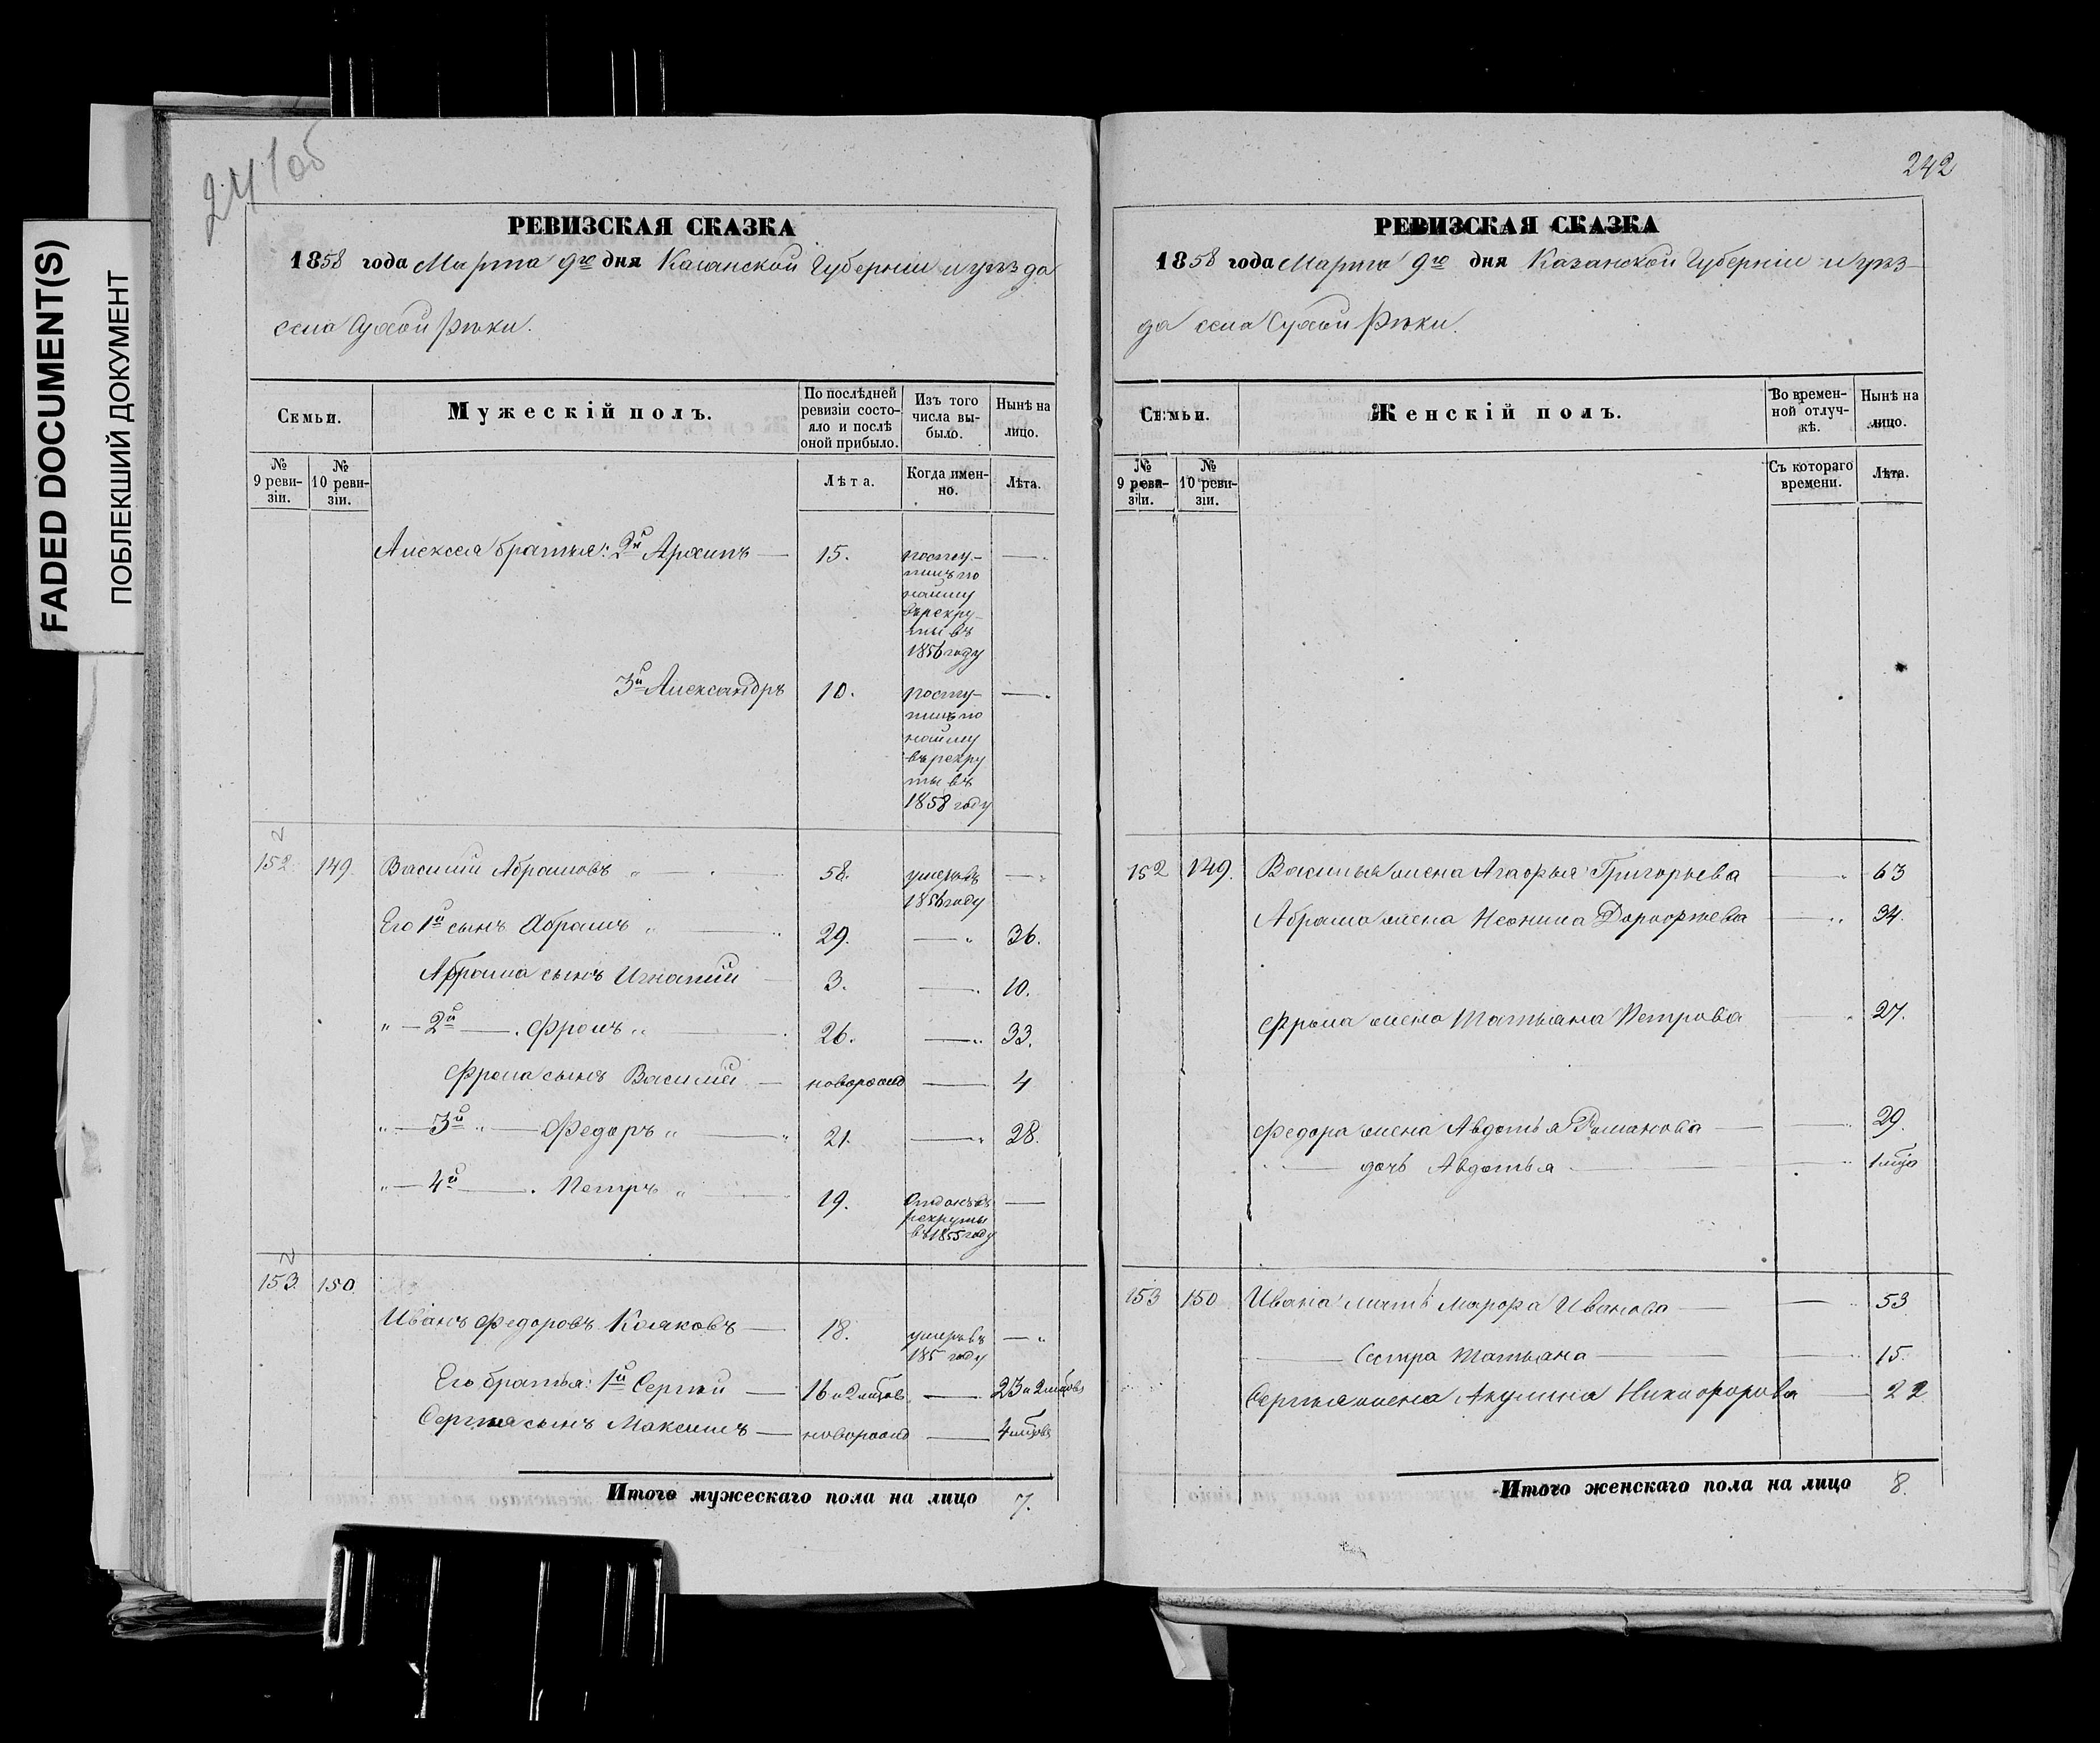 FADED DOCUMENT(S)
ПОБЛЕКШИЙ ДОКУМЕНТ
241об
РЕВИЗСКАЯ СКАЗКА
1858 года Марта 9го дня Казанской Губерніи и уѣзда
села Сухой Рѣки.
Семьи.
Мужескій полъ.
По послѣдней ревизіи состояло и послѣ оной прибыло.
Изъ того числа выбыло.
Нынѣ на лицо.
№ 9 ревизіи.
№ 10 ревизіи.
Лѣта.
Когда именно.
Лѣта.
Алексея братья: 2й Архипъ — 15. посту-
пилъ по
найму
въ рекру-
ты въ
1856 году
3й Александръ 10. посту-
пилъ по
найму
въ рекру
ты въ
1858 году
152 149. Василий Абрамовъ 58. умеръ въ
1856 году
Его 1й сынъ Абрамъ 29. 36.
Абрама сынъ Игнатий 3. 10.
" — 2й — Фромъ 26. 33.
Фрома сынъ Василий — новорожд — 4
" — 3й — Федоръ 21. 28.
" — 4й — Петръ 19. Отданъ въ
рекруты
въ 1855 году
153 150
Иванъ Федоровъ — 18. умеръ въ
185 году
Его братья: 1й Сергѣй — 16 и 2 мѣсов — 23 и 2 мѣсовъ
Сергѣя сынъ Максимъ — новорожд — 4 мѣсовъ
Итого мужескаго пола на лицо 7.
242
РЕВИЗСКАЯ СКАЗКА
1858 года Марта 9го дня Казанской Губерніи и уѣз-
да села Сухой Рѣки.
Семьи.
Женскій полъ.
Во временной отлучкѣ.
Нынѣ на лицо.
№ 9 ревизіи.
№ 10 ревизіи.
Съ котораго времени.
Лѣта.
152 149. Василья жена Агафья Григорьева 63
Абрама жена Неонила Дорофеева 34.
Фрома жена Татьяна Петрова 27.
Федора жена Авдотья Романова 29.
дочь Авдотья
153 150 Ивана мать Марфа Иванова 53
Сестра Татьяна 15.
Сергѣя жена Акулина Никифорова 22
Итого женскаго пола на лицо 8.